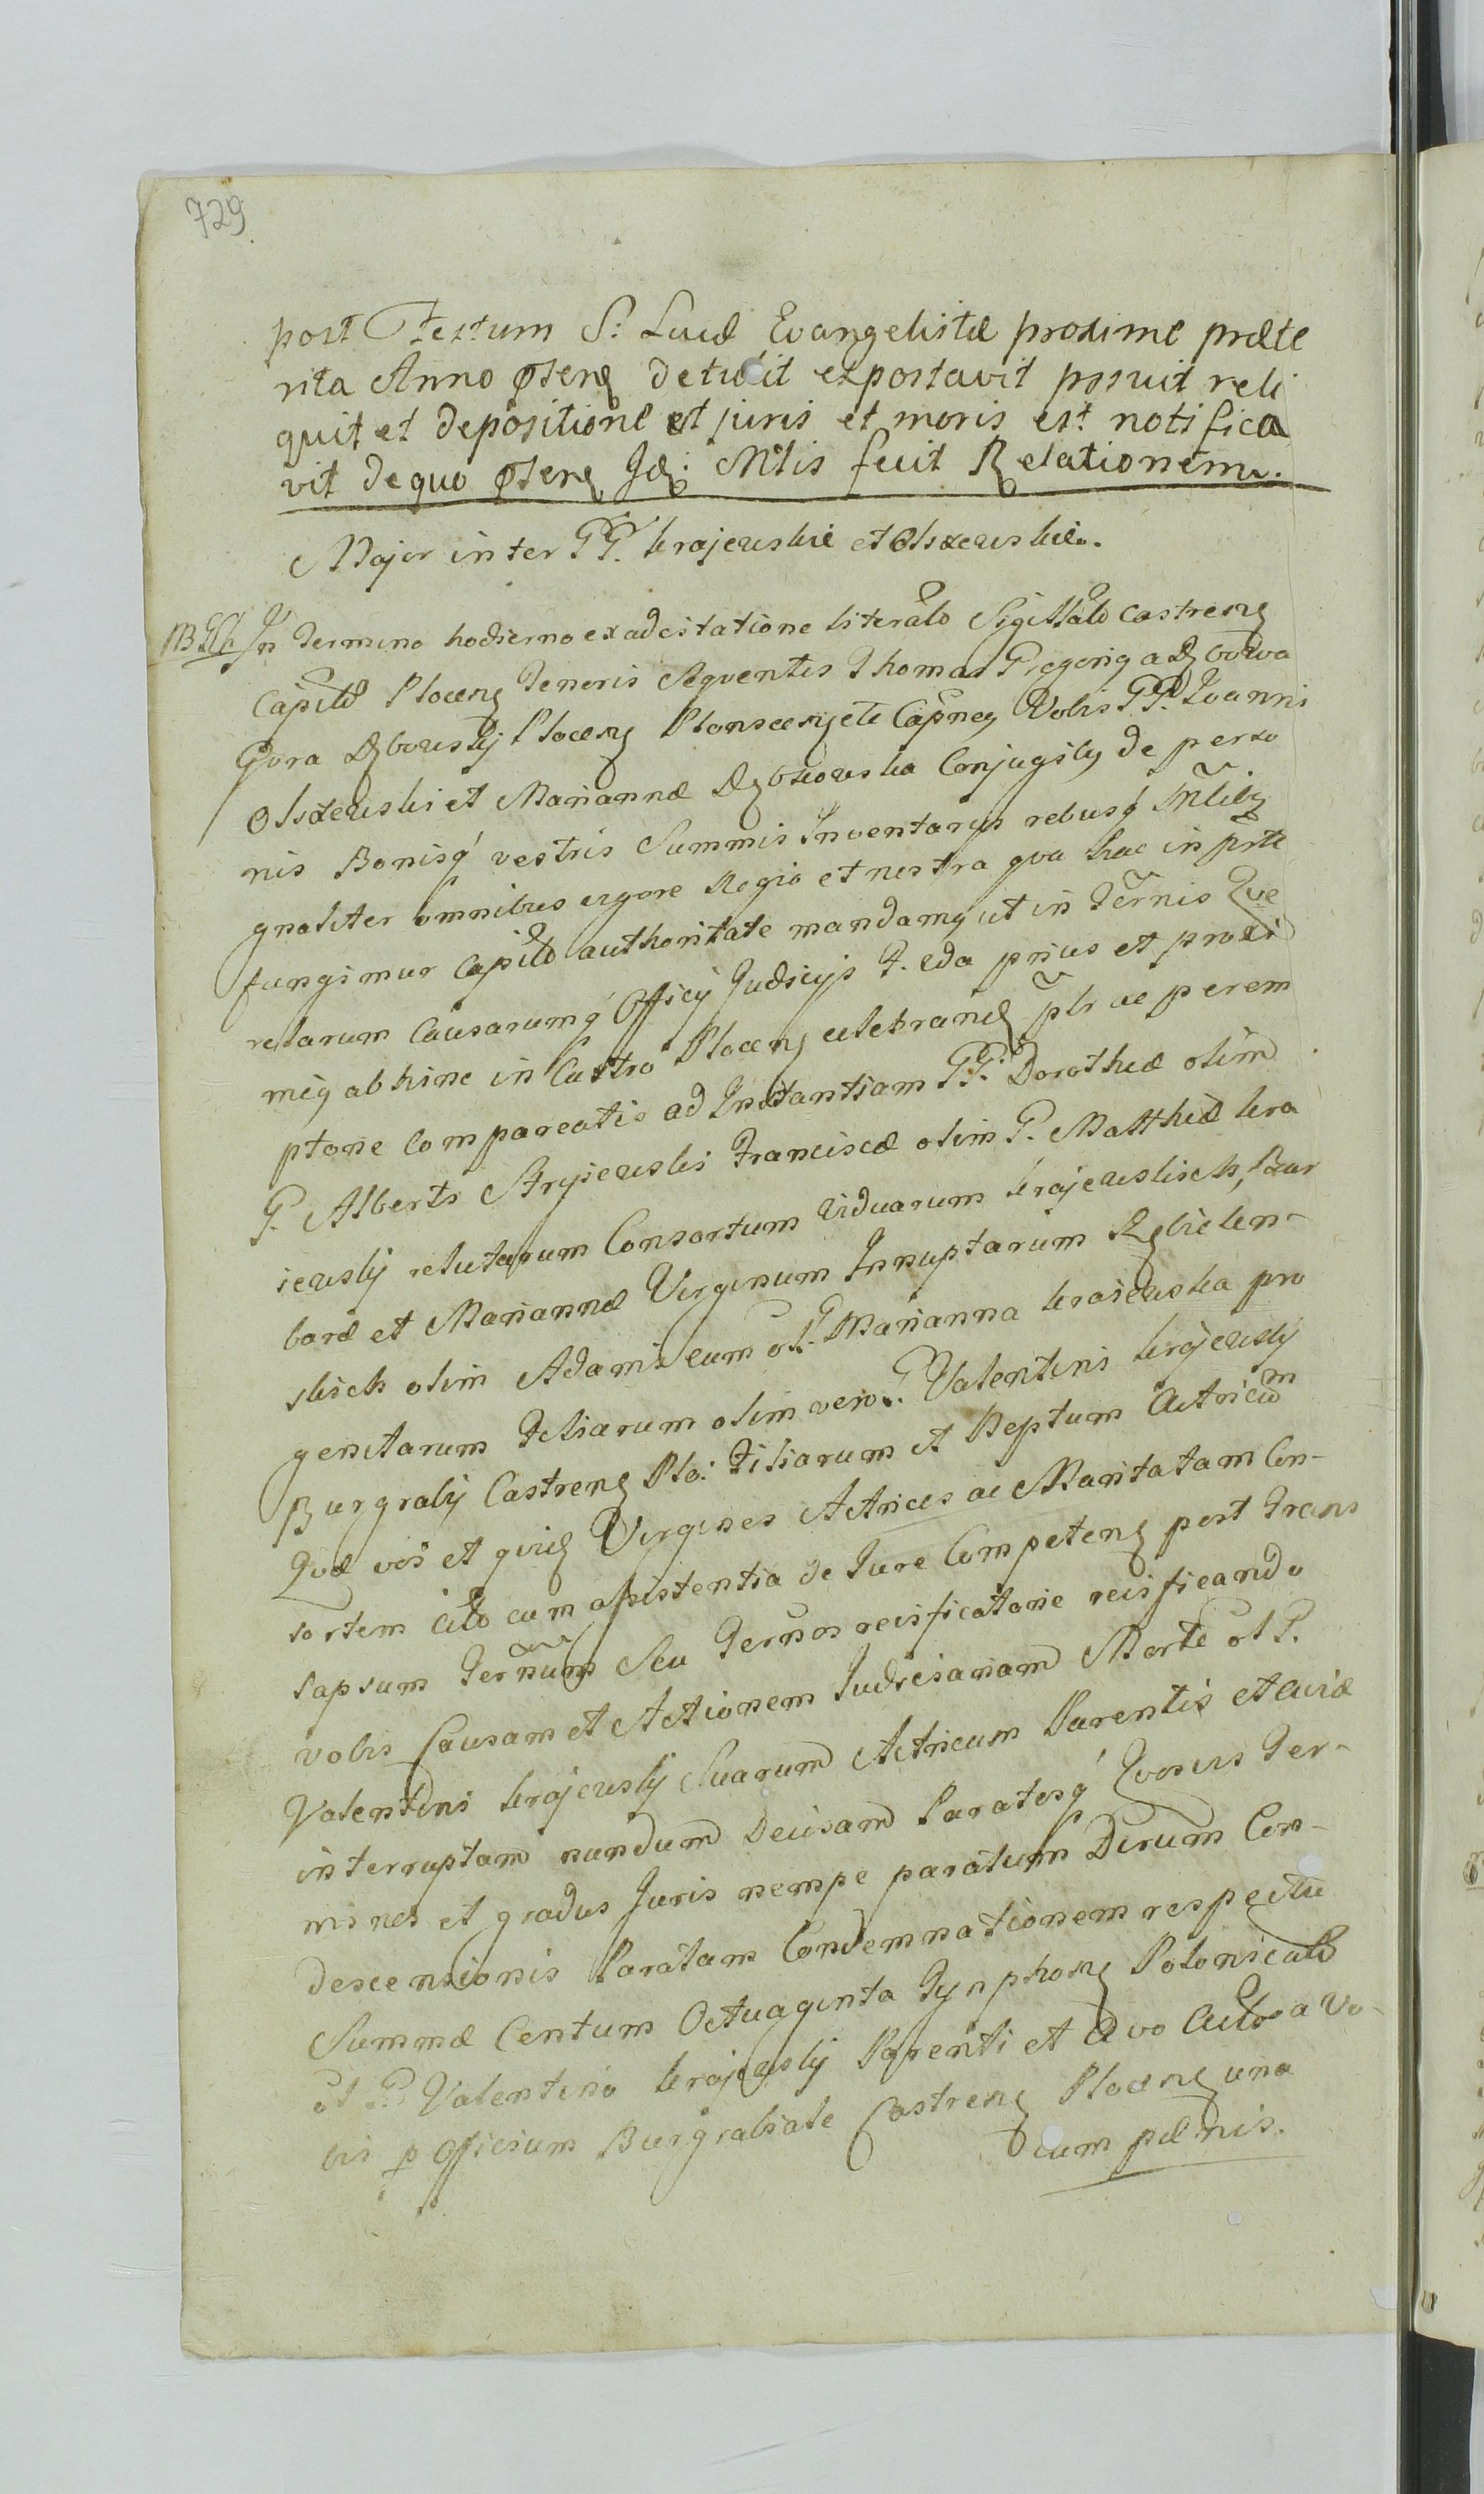 729
post Festum S: Lucæ Evangelistæ proxime præte
rita Anno pſenȩ detulit exportavit posuit reli
quit et depositione ut juris et moris est notifica
vit de quo pſenȩ Jdȩ: Mtis fecit Relationem.
Major inter PP. krajewskie et Olszewskie.
In Termino hodierno ex adcitatione literalo Sigillalo castrenȩ
Capitło Plocenȩ Tenoris seqventis Thomas Gregoriȩ a Dȩbowa
Gora Dȩbowskij Plocenȩ Plonscenȩ etc Capneȩ Vobis PP. Joanni
Olszewski et Mariannæ Dȩbkowska Conjugibȩ de perso
nis Bonisq' vestris Summis Inventarys rebusq' Mtibȩ
gnaliter omnibus vigore Regio et nostra qva hac in pste
fungimur Capitło authoritate mandamȩ ut in Ternis Qve
relarum Causarumq' Officij Judicijs F. eda prius et proxi
miȩ abhinc in Castro Plocenȩ celebranȩ plr ac perem
ptorie compareatis ad Instantiam PP. Dorotheæ olim
P. Alberti Stryiewski Franciscæ olim P. Matthiæ kra
iewskij relictarum Consortum Viduarum krajewskich, Bar
baræ et Mariannæ Virginum Innuptarum Rȩbielin-
skich olim Adami cum ol. P Marianna kraiewska pro
genitarum Filiarum olim vero P. Valentini krajewskij
Burgrabij Castrenȩ Plo: Filiarum et Neptum Actricum
Qvæ vos et qviȩ Virgines Actrices ac Maritatam Con-
sortem cum assistentia de Jure Competenȩ post Trans
lapsum Ternum Seu Ternos reisficatorie reisficando
vobis Causam et Actionem Judiciariam Morte ol P.
Valentini krajewskij Suarum Actricum Parentis et Aviæ
interruptam nundum Decisam Paratosq' Qvosvis Ter-
minos et gradus Juris nempe paratum Dirum Con-
descensionis Paratam Condemnationem respectu
Summæ Centum Octuaginta Tynphonȩ Polonicalo
ol P. Valentino krajewskij Parenti et Avo a Vo-
bis p Officium Burgrabiale Castrenȩ Plocenȩ una
cum pænis.